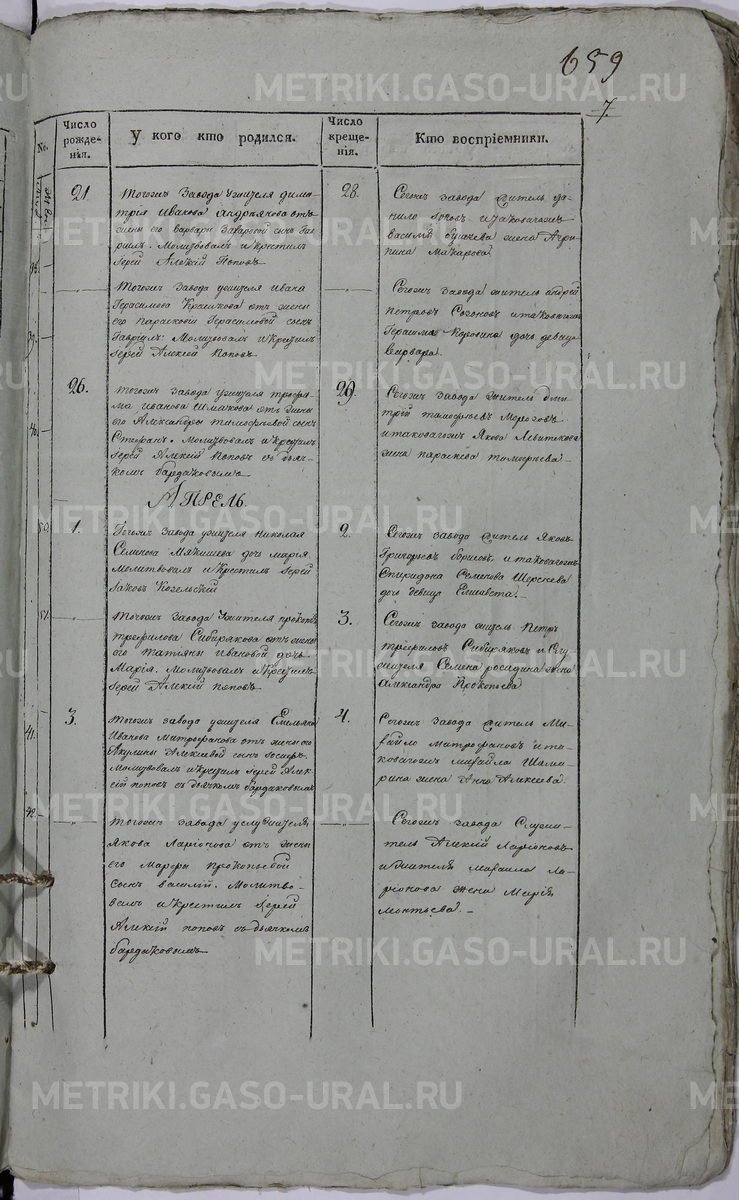 659
7.
No.
Число рожденія.
У кого кто родился.
Число крещенія.
Кто воспріемники.
21.
Тогожъ Завода у жителя Дими
трія Иванова Андріянова отъ
жены его Варвары Захаровой сынъ Гав
рилъ. Молитвовалъ и крестилъ
Іерей Алексій Поповъ
28.
Сегожъ завода житель Да
нило Поповъ и таковагожъ
Василья жена Агри
пина Макарова
38.
Тогожъ завода у жителя Ивана
Герасимова отъ жены
его Параскевіи Герасимовой сынъ
Гавріилъ. Молитвовалъ и крестилъ
Іерей Алексій Поповъ
Сегожъ завода житель Андрей
Петровъ и таковагожъ
Герасима Коровина дочь девица
Варвара.
39.
26.
Тогожъ завода у жителя Трофи
ма Иванова Шмакова отъ жены
его Александры Тимофеевой сынъ
Стефанъ. Молитвовалъ и крестилъ
Іерей Алексій Поповъ съ дьяч
комъ Бардаковымъ
29.
Сегожъ завода житель Дми
трій Тимофеевъ Морозовъ
и таковагожъ Якова
жена Параскева Тимофеева
40.
Апрель.
50.
1.
Тогожъ завода у жителя Николая
Семенова Мякишева дочь Марія
молитвовалъ и крестилъ Іерей
Іаковъ Козельскій
2.
Сегожъ завода житель Яковъ
Григорьевъ Борисовъ и таковагожъ
Спиридона Семенова
дочь девица Елисавета.
51.
Тогожъ завода у жителя Прокопья
Трефилова Сибирякова отъ жены
его Татьяны Ивановой дочь
Марія. Молитвовалъ и крестилъ
Іерей Алексій Поповъ
3.
Сегожъ завода житель Петръ
Трефиловъ Сибиряковъ и
жителя Семена жена
Александра Прокопьева
41.
3.
Тогожъ завода у жителя Емельяна
Иванова Митрофанова отъ жены его
Акулины Алексеевой сынъ Іосифъ.
Молитвовалъ и крестилъ Іерей Алек
сій Поповъ съ дьячкомъ Бардаковымъ
4.
Сегожъ завода житель Ми
хайло Митрофановъ и та
ковагожъ Михайла Шама
рина жена Анна Алексеева.
42.
Тогожъ завода у служителя
Якова Ларіонова отъ жены
его Марфы Прокопьевой
сынъ Василій. Молитво
валъ и крестилъ Іерей
Алексій Поповъ съ дьячкомъ
Бардаковымъ
Сегожъ завода Служи
тель Алексій Ларіоновъ
и жителя Михаила Ла
ріонова жена Марія
Леонтьева.
METRIKI.GASO-URAL.RU